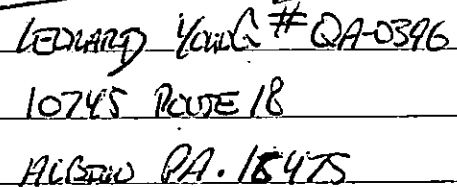 LEONARD YOUNG # QA-0396
10745 ROUTE 18
ALBION PA. 16475